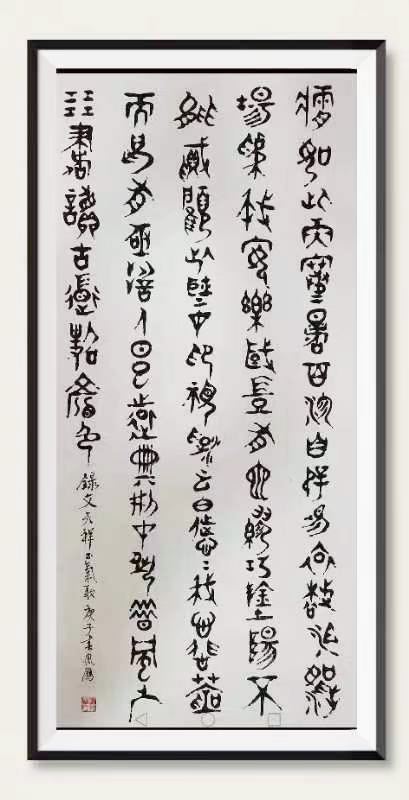 瘠如此再寒暑百沴自辟易哀哉沮洳
場為我安樂國豈有他繆巧陰陽不
能賊顧此耿耿在仰視浮雲白悠悠我心悲蒼
天曷有極哲人日已遠典刑在夙昔風檐
展書讀古道照顏色
錄文天祥正氣歌庚子春